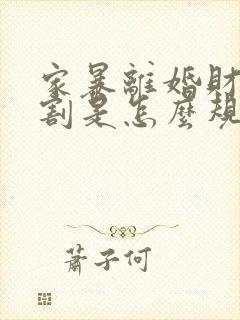 家暴離婚財
割是怎麼規
蕭子何